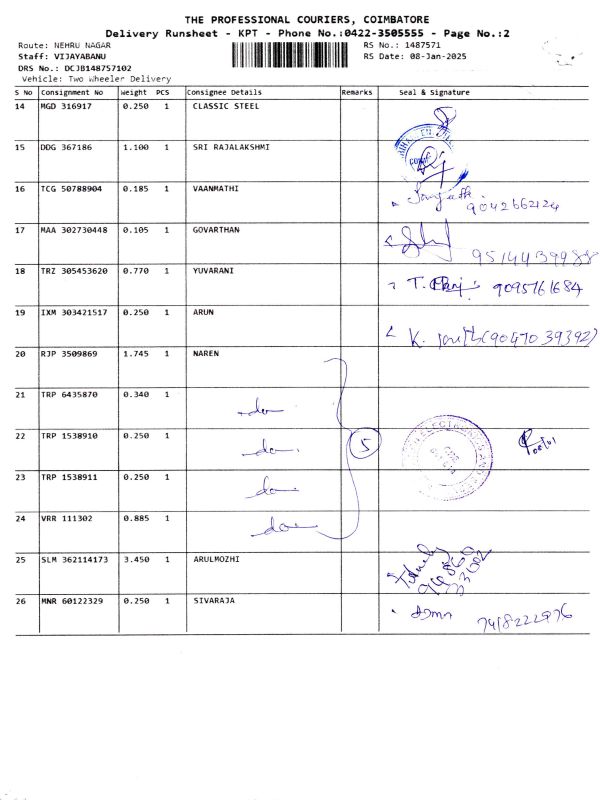 THE PROFESSIONAL COURIERS, COIMBATORE
Delivery Runsheet - KPT - Phone No.:0422-3505555 - Page No.:2
Route: NEHRU NAGAR RS No.: 1487571
Staff: VIJAYABANU RS Date: 08-Jan-2025
DRS No.: DCJB148757102
Vehicle: Two Wheeler Delivery
S No Consignment No Weight PCS Consignee Details Remarks Seal & Signature
14 MGD 316917 0.250 1 CLASSIC STEEL
15 DDG 367186 1.100 1 SRI RAJALAKSHMI
16 TCG 50788904 0.185 1 VAANMATHI
9042662124
17 MAA 302730448 0.105 1 GOVARTHAN
9514439988
18 TRZ 305453620 0.770 1 YUVARANI
9095161684
19 IXM 303421517 0.250 1 ARUN
(9047039392)
20 RJP 3509869 1.745 1 NAREN
21 TRP 6435870 0.340 1 do
22 TRP 1538910 0.250 1 do 5
23 TRP 1538911 0.250 1 do
24 VRR 111302 0.885 1 do
25 SLM 362114173 3.450 1 ARULMOZHI
26 MNR 60122329 0.250 1 SIVARAJA